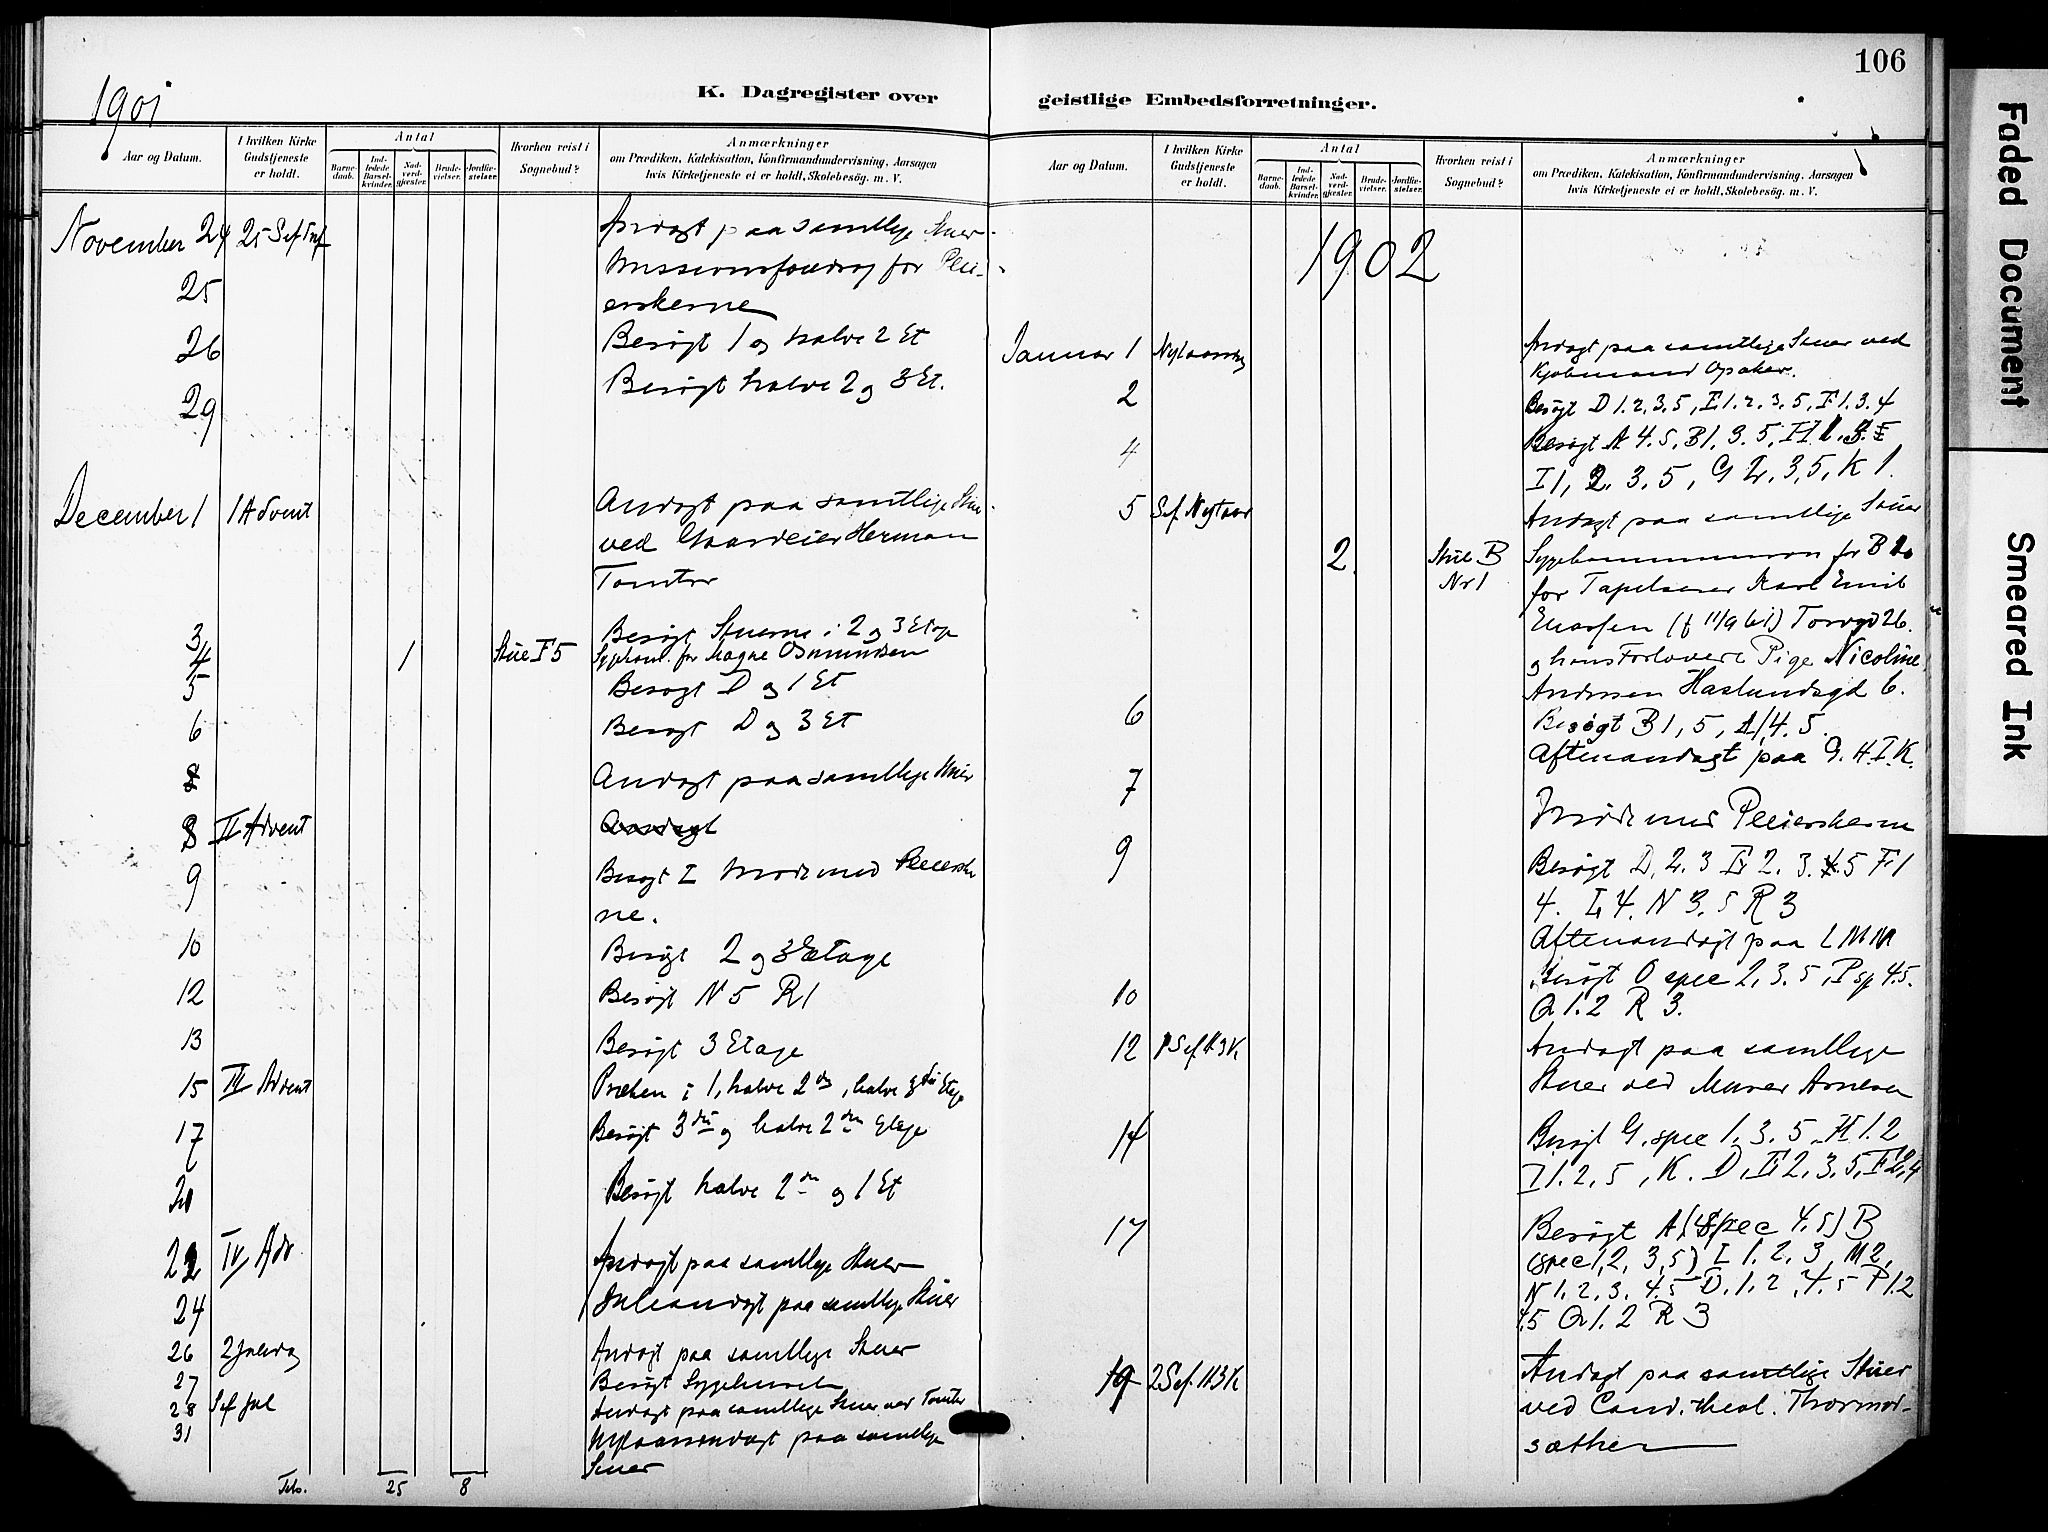 106
1901
K. Dagregister over geistlige Embedsforretninger.
Aar og Datum.
I hvilken Kirke Gudstjeneste er holdt.
Antal
Barne-daab.
Ind-ledede Barsel-kvinder.
Nad-verd-gjester.
Brude-vielser.
Jordfæ-stelser.
Hvorhen reist i Sognebud?
Anmærkninger
om Prædiken, Katekisation, Konfirmandundervisning, Aarsagen
hvis Kirketjeneste ei er holdt, Skolebesøg. m. V.
November 24 25 Sef Tref Andagt paa samtlige Stuer
25 Missionsforedrag for Plei-
erskerne
26 Besøgt 1 og halve 2 Et
29 Besøgt halve 2 og 3 Et.
December 1 1 Advent Andagt paa samtlige Stuer
ved Gaardeier Herman
Tomter
3 Besøgt Stuerne i 2 og 3 Etage
4 1 Stue F 5 Sygekom. for Magne Osmundsen
5 Besøgt D og 1 Et
6 Besøgt D og 3 Et
8 Andagt paa samtlige Stuer
8 II Advent Andagt
9 Besøgt I Møde med Pleierske
ne.
10 Besøgt 2 og 3 Etage
12 Besøgt N 5 R 1
13 Besøgt 3 Etage
15 III Advent Præken i 1, halve 2den, halve 3die Etage
17 Besøgt 3die og halve 2den Etage
20 Besøgt halve 2den og 1 Et
22 IV Adv Andagt paa samtlige Stuer
24 Juleandagt paa samtlige Stuer
26 2 Juledag Andagt paa samtlige Stuer
27 Besøgt Sygehuset
28 Sef Jul Andagt paa samtlige Stuer ved Tomter
31 Nytaarsandagt paa samtlige
Stuer
25 8
Aar og Datum.
I hvilken Kirke Gudstjeneste er holdt.
Antal
Barne-daab.
Ind-ledede Barsel-kvinder.
Nad-verd-gjester.
Brude-vielser.
Jordfæ-stelser.
Hvorhen reist i Sognebud?
Anmærkninger
om Prædiken, Katekisation, Konfirmandundervisning, Aarsagen
hvis Kirketjeneste ei er holdt, Skolebesøg. m. V.
1902
Januar 1 Nytaarsdag Andagt paa samtlige Stuer ved
Kjøbmand
2 Besøgt D 1. 2. 3. 5, E 1. 2. 3. 5, F 1. 3. 4
4 Besøgt A 4. 5, B 1. 3. 5, H 1.
I 1, 2. 3. 5, G 2, 3, 5, K 1.
5 Sef Nytaar Andagt paa samtlige Stuer
2 Stue B Nr 1 Sygekommunion for B
for Tapetserer Karl Emil
(f 11/9 61) Torvgd 26.
og hans Forlovede Pige Nicoline
Andersen Haslundsgd 6.
6 Besøgt B 1, 5, A 4. 5.
Aftenandagt paa G. H. I. K.
7 Møde med Pleierskerne
9 Besøgt D, 2. 3 E 2. 3. 5 F 1
4. L 4. N 3. 5 R 3
Aftenandagt paa L M N
10 Besøgt O spec 2, 3. 5, P sp 4 5.
Q 1. 2 R 3.
12 1 Sef H 3 K Andagt paa samtlige
Stuer ved Murer Arnesen
14 Besøgt G. spec 1. 3. 5 H 1. 2
I 1. 2, 5, K. D, E 2, 3, 5, F 2, 4
17 Besøgt A (spec 4. 5) B
(spec 1, 2, 3, 5) L 1. 2, 3 M 2,
N 1. 2, 3. 4. 5 O. 1. 2, 4. 5 P 1. 2
4 5 Q 1. 2 R 3
19 2 Sef H 3 K Andagt paa samtlige Stuer
ved Cand. theol. Thormod-
sæther
Faded Document
Smeared Ink